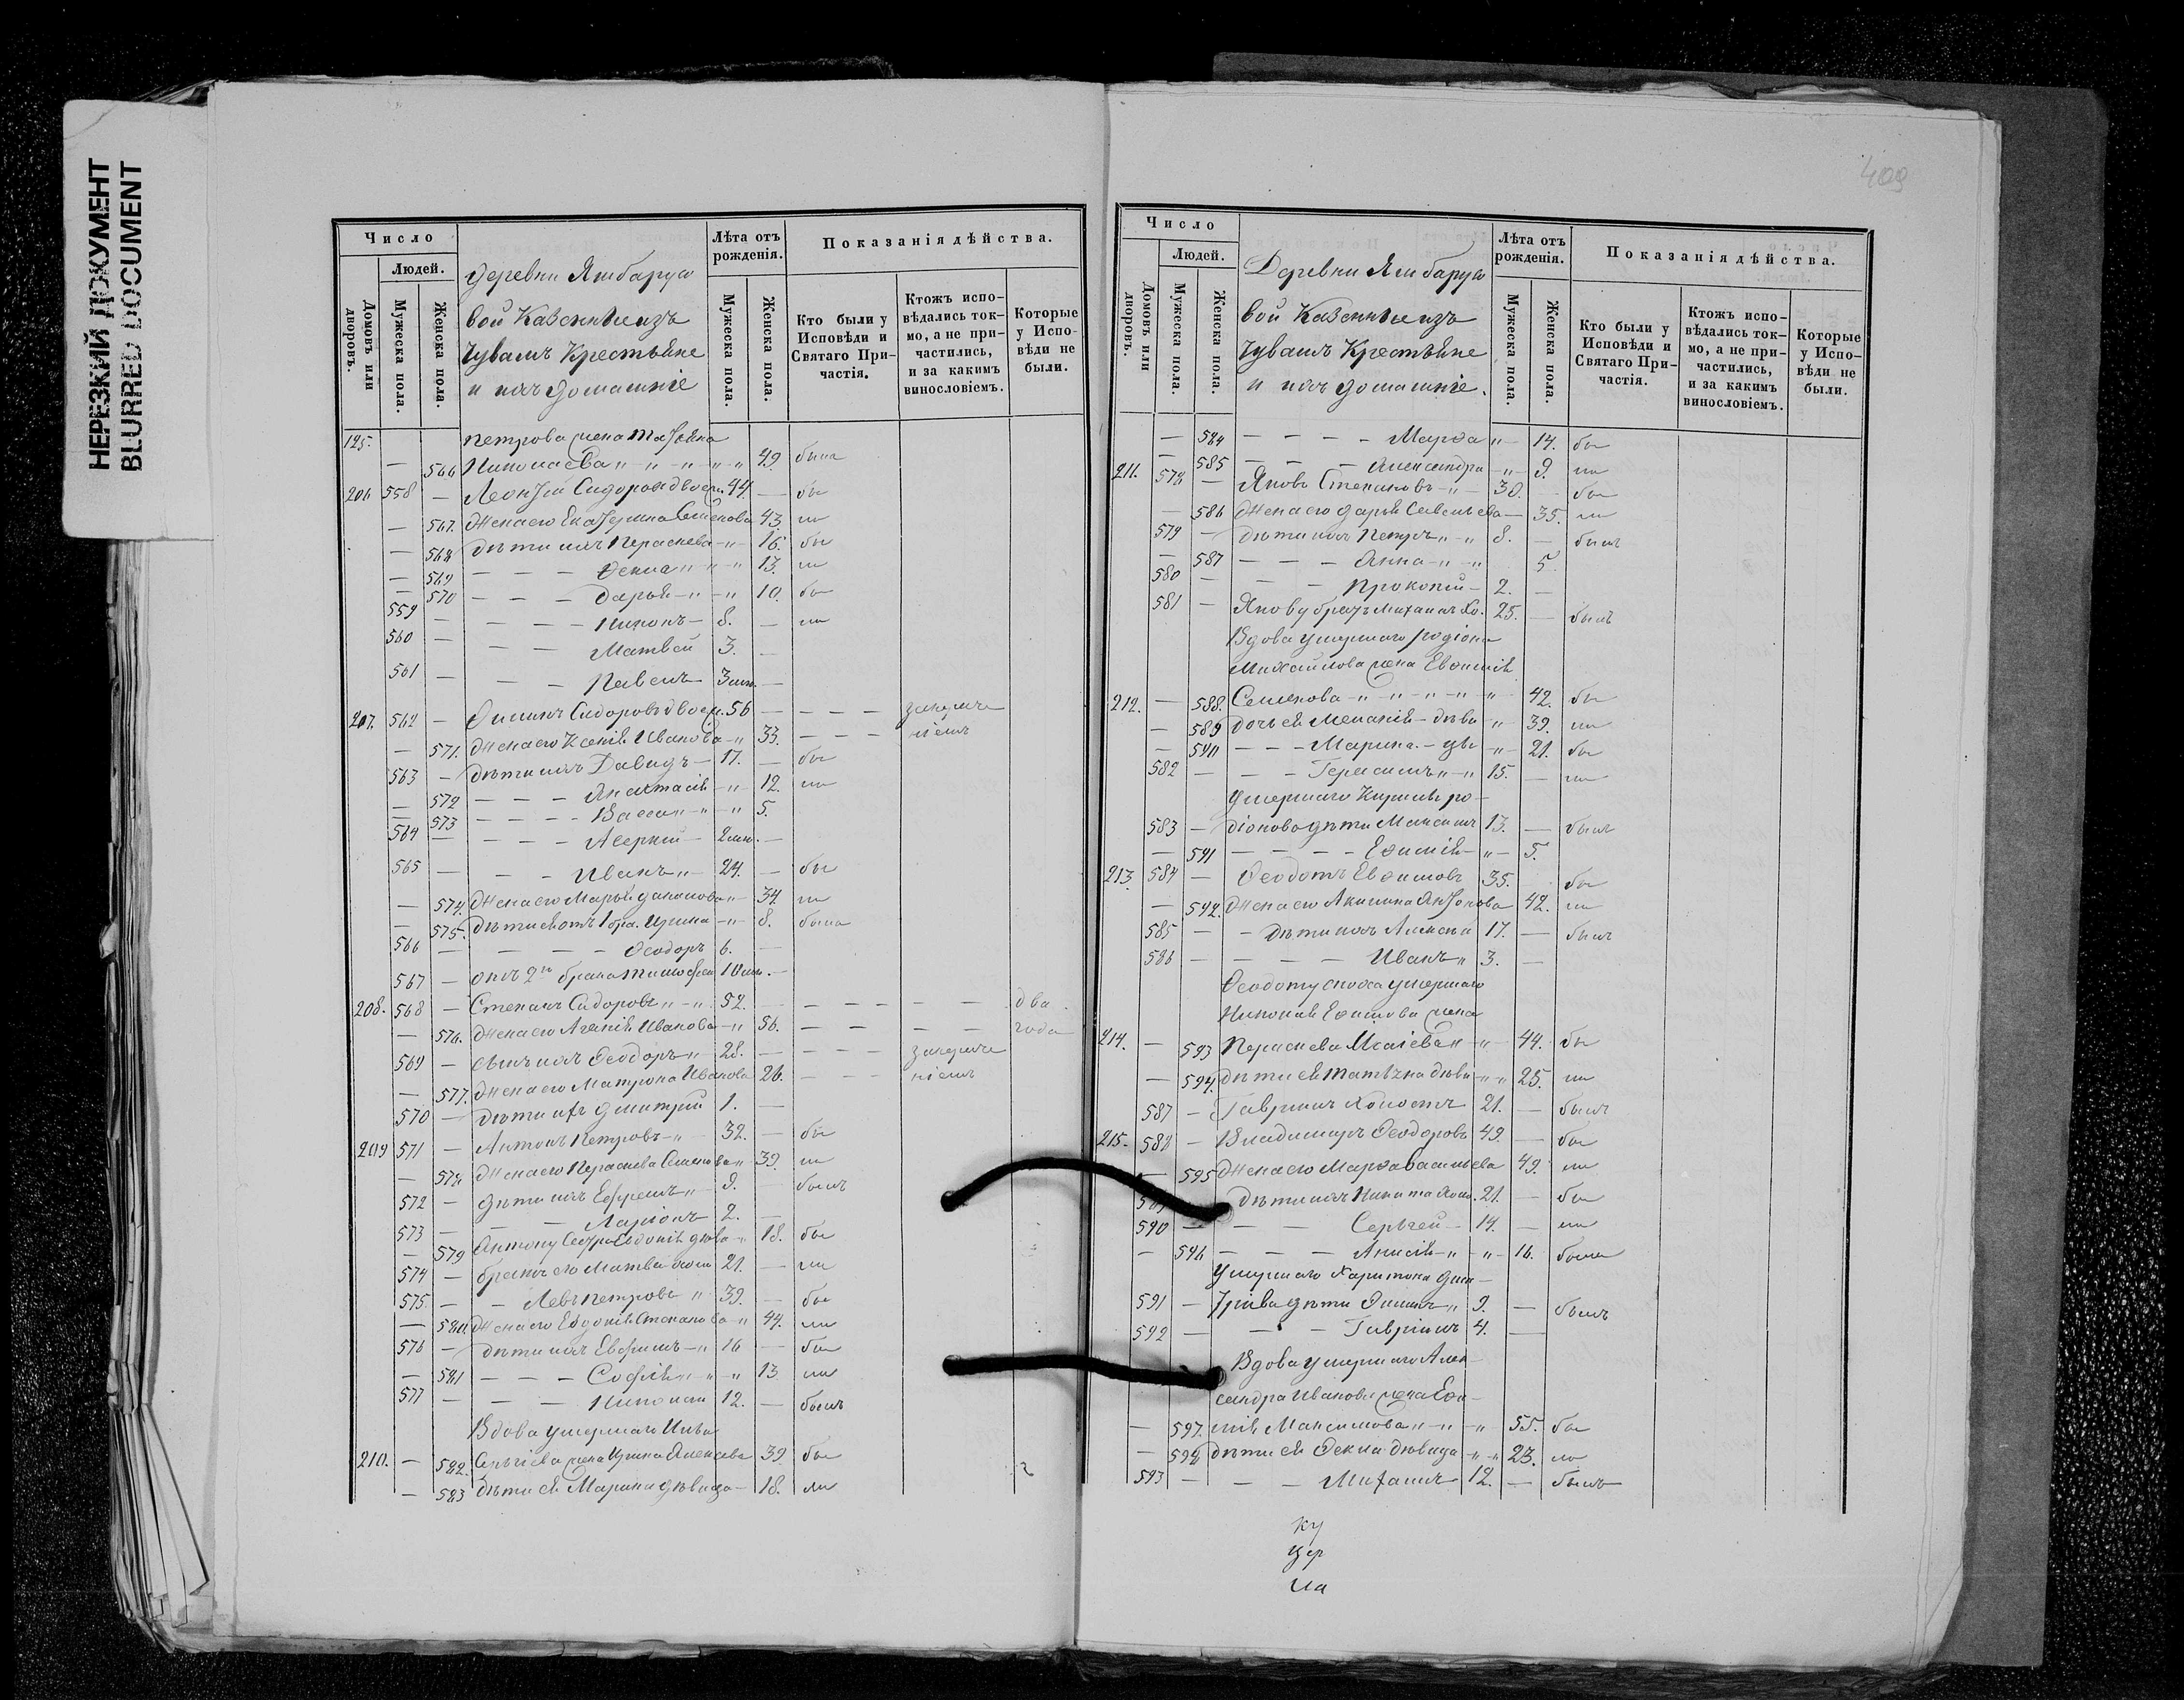 НЕРЕЗКИЙ ДОКУМЕНТ
BLURRED DOCUMENT
Число
Людей.
Домовъ или дворовъ.
Мужеска пола.
Женска пола.
Деревни Яшбарусо
вой Казенные изъ
Чувашъ Крестьяне
и ихъ домашніе
Лѣта отъ рожденія.
Мужеска пола.
Женска пола.
Показанія дѣйства.
Кто были у Исповѣди и Святаго Причастія.
Ктожъ исповѣдались токмо, а не причастились, и за какимъ винословіемъ.
Которые у Исповѣди не были.
Петрова жена
195. — 566 Николаева 49. была
206 558 — Сидоровъ 44. — бы
— 567. Жена его Екатерина Семенова 43. ли
— 568 дѣти ихъ Параскева 16. бы
— 569 — — — Ѳекла 13. ли
— 570 — — — Дарья 10. бы
559 — — — — Никонъ 8. — ли
560 — — — Матвей 3. —
561 — — — Павелъ 3 —
207. 562 — Сидоровъ 56 — — — —
— 571. Жена его Ксенія Иванова 33. — — —
563 — дѣти ихъ Давидъ 17. — бы
— 572 — — — Анастасія 12. ли
— 573 — — — Васса 5.
564 — — — — 2 —
565 — — — Иванъ 24. — бы
— 574. Жена его Марья 34. ли
— 575. дѣти отъ 1 бра. Ирина 8. была
566 — — — — Ѳеодоръ 6. —
567 — отъ 2го брака Тимоѳей 10 —
208. 568 — Степанъ Сидоровъ 52. — — — — — два
— 576. Жена его Иванова 56. — — — — года
569 — сынъ ихъ Ѳеодоръ 28. — — — —
— 577. Жена его Матрона Иванова 26. — — —
570 — дѣти ихъ Дмитрій 1. —
209 571 — Антонъ Петровъ 32. — бы
— 578 Жена его Параскева Семенова 39. ли
572 — дѣти ихъ Ефремъ 9. — былъ
573 — — — Ларіонъ 2. —
— 579 Антону Сестра Евдокія дѣва 18. бы
574 — братъ его 21. — ли
575 — — Левъ Петровъ 39. — бы
— 580. Жена его Евдокія Степанова 44. ли
576 — дѣти ихъ 16 — бы
— 581 — — — Софія 13 ли
577 — — — Николай 12. — былъ
Вдова умершаго
210. — 582. Сергіева жена Ирина Алексеева 39. бы
— 583 дѣти ея Марина дѣвица 18. ли
409
Число
Людей.
Домовъ или дворовъ.
Мужеска пола.
Женска пола.
Деревни Яшбарусо
вой Казенные изъ
Чувашъ Крестьяне
и ихъ домашніе.
Лѣта отъ рожденія.
Мужеска пола.
Женска пола.
Показанія дѣйства.
Кто были у Исповѣди и Святаго Причастія.
Ктожъ исповѣдались токмо, а не причастились, и за какимъ винословіемъ.
Которые у Исповѣди не были.
— 584 — — — — Марѳа 14. бы
— 585 — — — Александра 9. ли
211. 578 — Яковъ Степановъ 30. бы
— 586 Жена его Дарья Савельева 35. ли
579 — дѣти ихъ Петръ 8. — былъ
— 587 — — — Анна 5.
580 — — — Прокопій 2. —
581 — Якову братъ Михаилъ Хо. 25. — былъ
Вдова умершаго Родіона
Михайлова жена Евѳимія
212. — 588. Семенова 42. бы
— 589 дочь ея Меланія дѣва 39. ли
— 590 — — — Марина 21. бы
582 — — — Герасимъ 15. — ли
умершаго Кирила Ро-
583 — діонова дѣти Максимъ 13. — былъ
— 591 — — — — Ефимія 5.
213. 584 — Ѳеодотъ Евѳимовъ 35. бы
— 592. Жена его Акилина Антонова 42. ли
585 — — дѣти ихъ Алексей 17. — былъ
586 — — — — Иванъ 3. —
Ѳеодоту сноха умершаго
Николая Ефимова жена
214. — 593 Параскева Исаіева 44. бы
— 594. дѣти ея Татьяна дѣва 25. ли
587 — Гаврилъ Холостъ 21. — былъ
215. 588 — Владимиръ Ѳеодоровъ 49. — бы
— 595 Жена его Марѳа Васильева 49. ли
589 дѣти ихъ Никита Холо. 21. — бы
590 — — — Сергей 14. — ли
— 596 — — — Анисія 16. была
умершаго Харитона Дми-
591 — тріева дѣти Филипъ 9. — былъ
592 — — — Гавріилъ 4. —
Вдова умершаго Алек-
сандра Иванова жена Ефи-
— 597. мія Максимова 55. бы
— 598 дѣти ея Ѳекла дѣвица 23. ла
593 — — — Михаилъ 12. — былъ